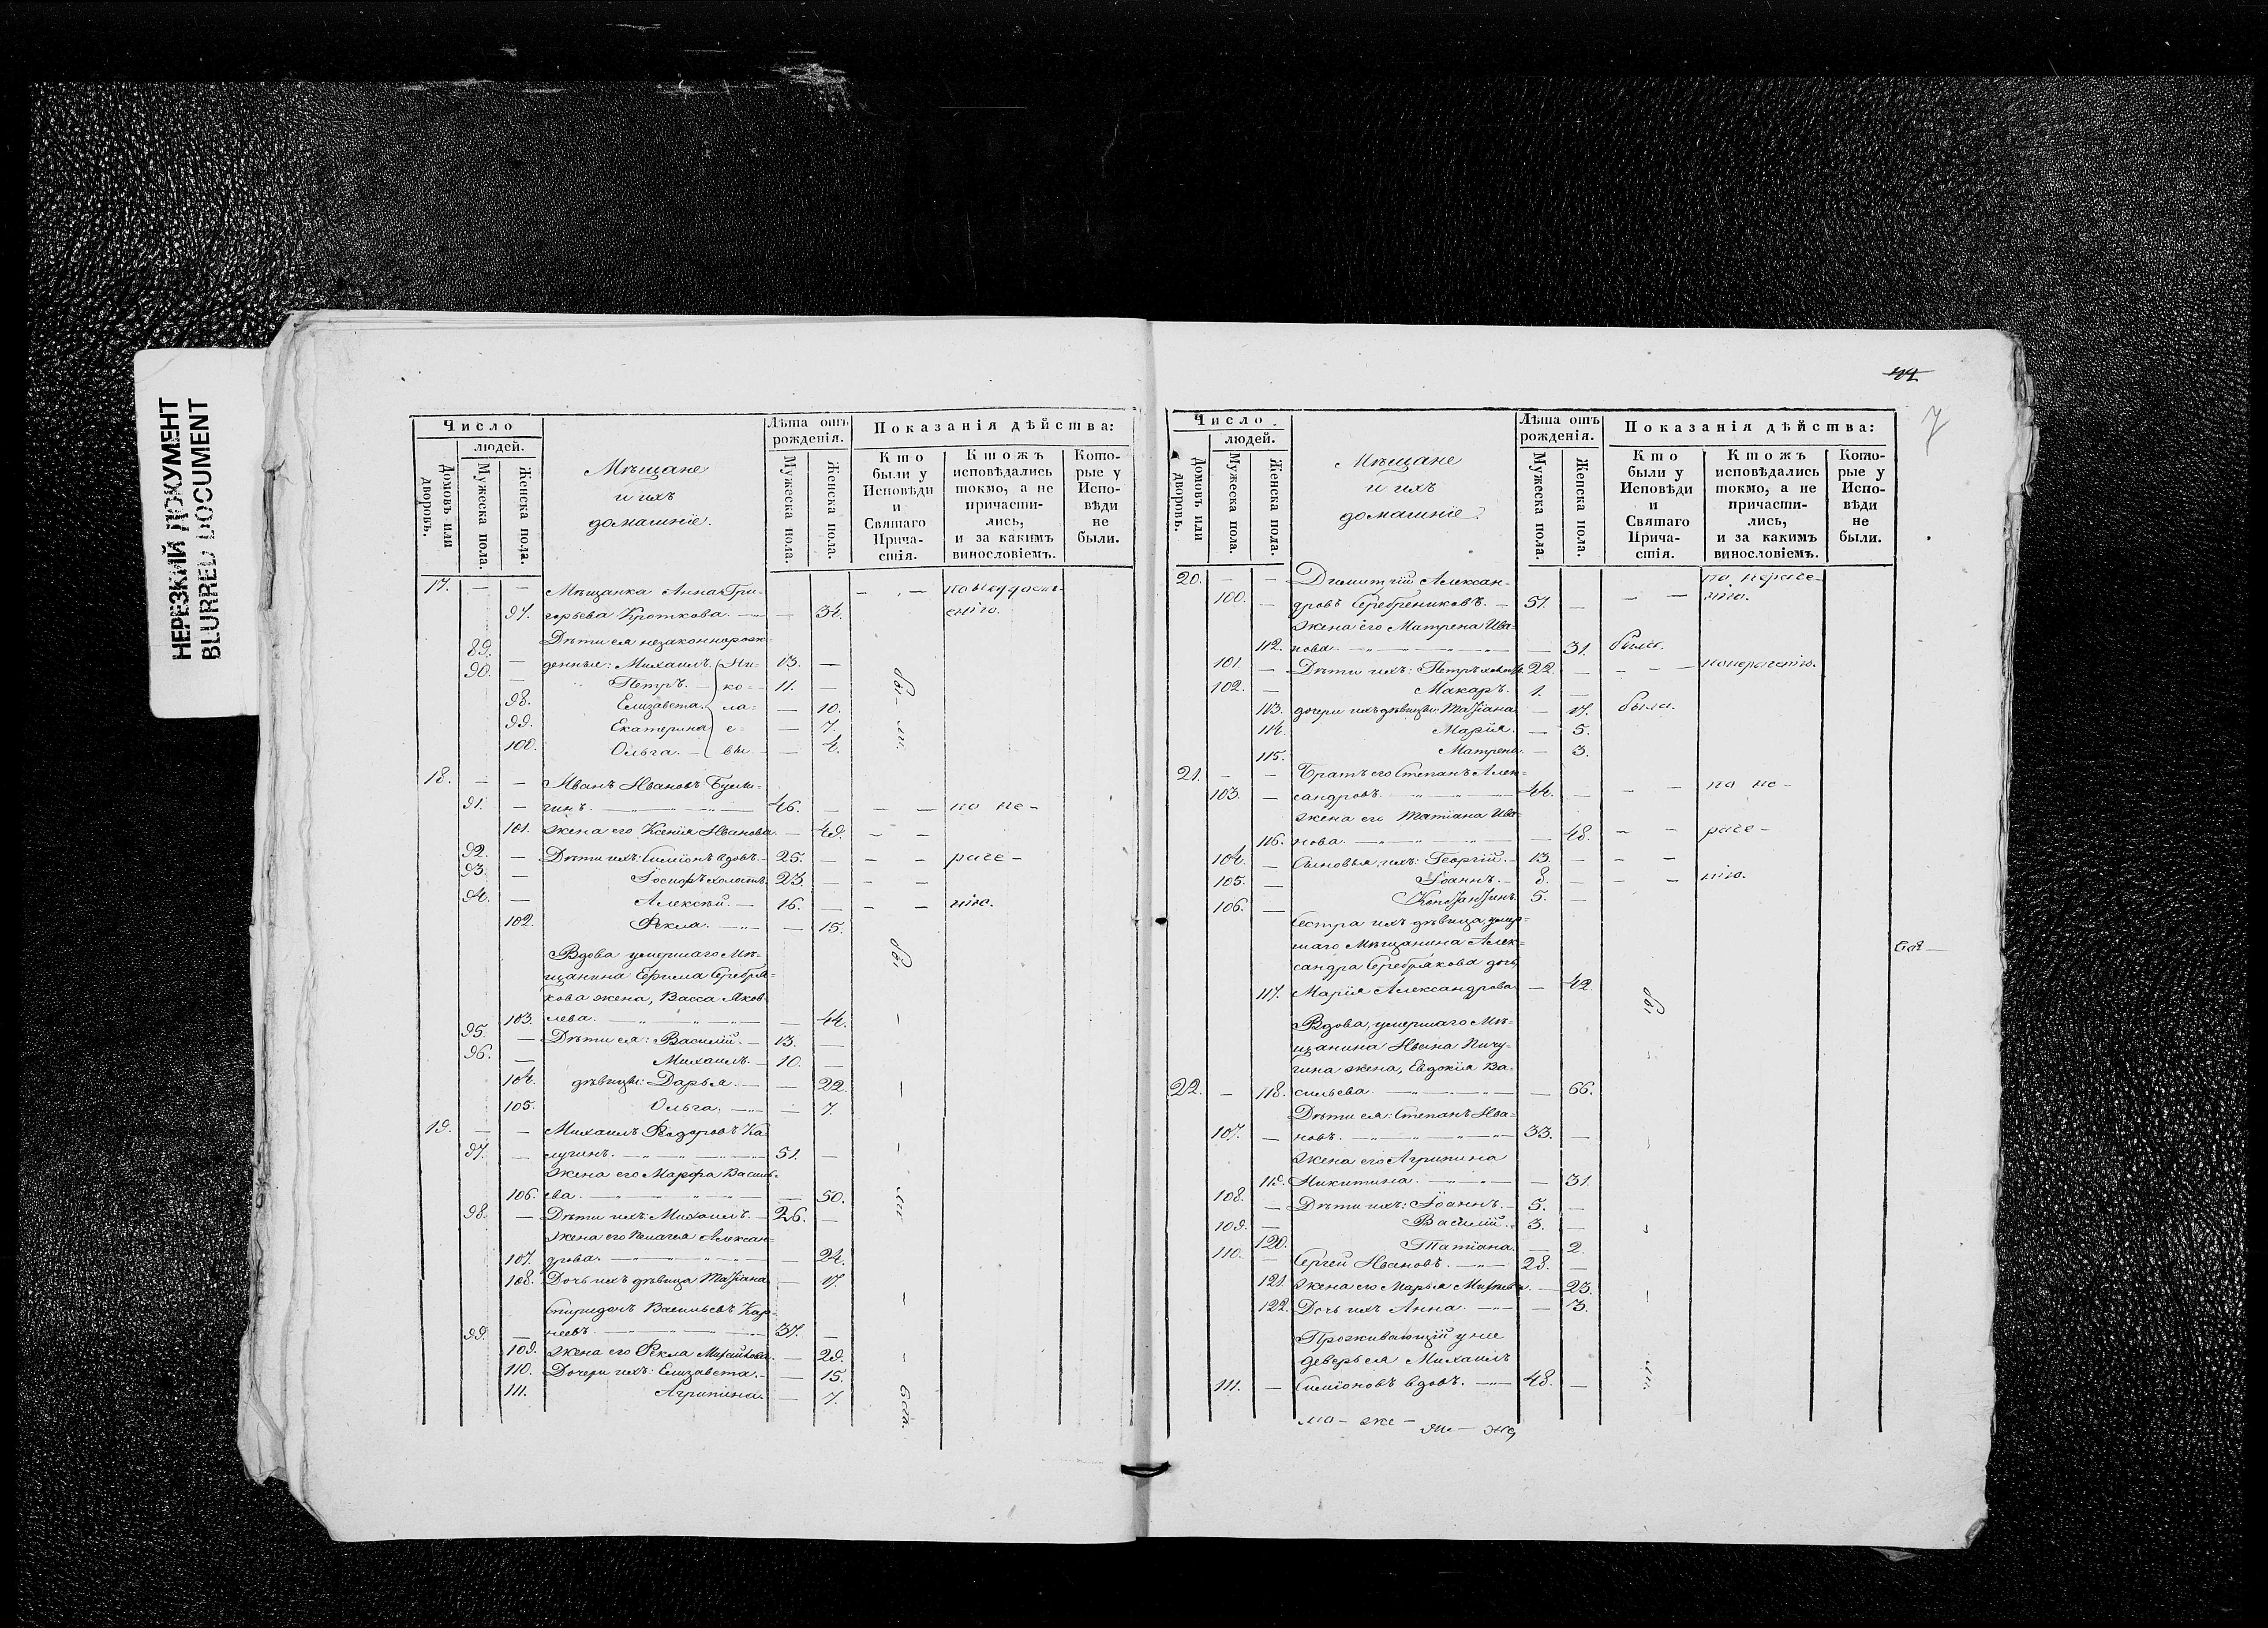 НЕРЕЗКИЙ ДОКУМЕНТ
BLURRED DOCUMENT
Число
людей.
Домовъ или дворовъ.
Мужеска пола.
Женска пола.
Мѣщане
и ихъ
домашніе.
Лѣта отъ рожденія.
Мужеска пола.
Женска пола.
Показанія дѣйства:
Кто были у Исповѣди и Святаго Причастія.
Ктожъ исповѣдались токмо, а не причастились, и за какимъ винословіемъ.
Которые у Исповѣди не были.
17. — — Мѣщанка Анна Гри-
97. горьева Кроткова. — — 34.
Дѣти ея незаконнорож-
89. — денные: Михаилъ. Ни- 13. —
90. — Петръ. — ко- 11. —
98. Елизавета. ла- — 10.
99. Екатерина е- — 7.
100. Ольга. — вы. — 4.
бы- ли.
18. — — Иванъ Ивановъ
91. — гинъ. 46. — — — по не-
101. жена его Ксенія Иванова. — 49. — —
92. — Дѣти ихъ: Симіонъ вдовъ. — 25. — — — раче-
93. — холостъ. 23. — — —
94. — Алексѣй. — 16. — — — нію.
102. Ѳекла. — — 15.
Вдова умершаго Мѣ-
щанина Ефима Серебря-
кова жена, Васса Яков-
103. лева. — 44.
95. — Дѣти ея: Василій. — 13. —
96. — Михаилъ. — 10. —
104. дѣвицы: Дарья. — — 22.
105. Ольга. — — 7.
бы
19. — — Михаилъ Ѳедоровъ Ка-
97. — лугинъ. 51. —
жена его Марфа Василь-
106. ева. — 50.
98. — Дѣти ихъ: Михаилъ. — 26. —
жена его Пелагея Алексан-
107. дрова. — 24.
108. Дочь ихъ дѣвица Татіана — 17.
Спиридонъ Васильевъ Кор-
99. — неевъ. 37. —
109. жена его Ѳекла Михайлова. — 29.
110. Дочери ихъ: Елизавета. — — 15.
111. Агрипина. — 7.
ли
44
7
Число
людей.
Домовъ или дворовъ.
Мужеска пола.
Женска пола.
Мѣщане
и ихъ
домашніе.
Лѣта отъ рожденія.
Мужеска пола.
Женска пола.
Показанія дѣйства:
Кто были у Исповѣди и Святаго Причастія.
Ктожъ исповѣдались токмо, а не причастились, и за какимъ винословіемъ.
Которые у Исповѣди не были.
20. — — Димитрій Алексан- по нераче-
100. — дровъ Серебрениковъ. — 51. — — — нію.
жена его Матрена Ива-
112. нова. — 31. была.
101. — Дѣти ихъ: Петръ 22. — — — по нераченію.
102. — Макаръ. 1. —
113. дочери ихъ дѣвицы: Татіана — 17. была.
114. Марія. — 5.
115. Матрена. — 3.
21. — — Братъ его Степанъ Алек-
103. — сандровъ. 44. — — — по не-
жена его Татіана Ива-
116. нова. — 48. — — раче-
104. — Сыновья ихъ: Георгій. — 13. — — —
105. — Іоаннъ. — 8. — — — нію.
106. — Константинъ. 5. —
Сестра ихъ дѣвица, умер-
шаго Мѣщанина Алек-
сандра Серебрякова дочь,
117. Марія Александрова — 42
бы
Вдова, умершаго Мѣ-
щанина Ивана Пичу-
гина жена, Евдокія Ва-
22. — 118. сильева. — 66.
Дѣти ея: Степанъ Ива-
107. — новъ. 33. —
жена его Агрипина
119. Никитина. — 31.
108. — Дѣти ихъ: Іоаннъ. — 5. —
109. — Василій. — 3. —
120. Татіана. — 2.
110. — Сергей Ивановъ. 28. —
121. жена его Марья — 23.
122. Дочь ихъ Анна. — 3.
Проживающій у нее
деверь ея Михаилъ
111. — Симіоновъ вдовъ. 48. —
ли.